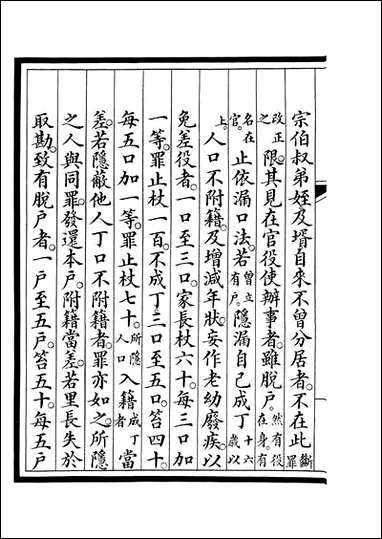 宗伯叔弟姪及壻自來不曾分居者。不在此斷罪
改正之限。其見在官役使辦事者。雖脫戶。然有役在身。有
名在官。止依漏口法。若曾立有戶。隱漏自己成丁十六歲以
上。人口不附籍。及增減年狀。妄作老幼廢疾。以
免差役者。一口至三口。家長杖六十。每三口加
一等。罪止杖一百。不成丁三口至五口。笞四十。
每五口加一等。罪止杖七十。所隱人口入籍成丁者當
差。若隱蔽他人丁口不附籍者。罪亦如之。所隱
之人與同罪。發還本戶。附籍當差。若里長失於
取勘。致有脫戶者。一戶至五戶。笞五十。每五戶